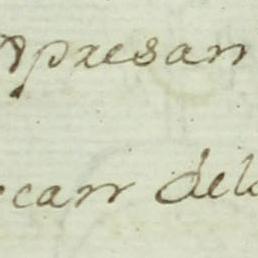 Apresan
ecan dela